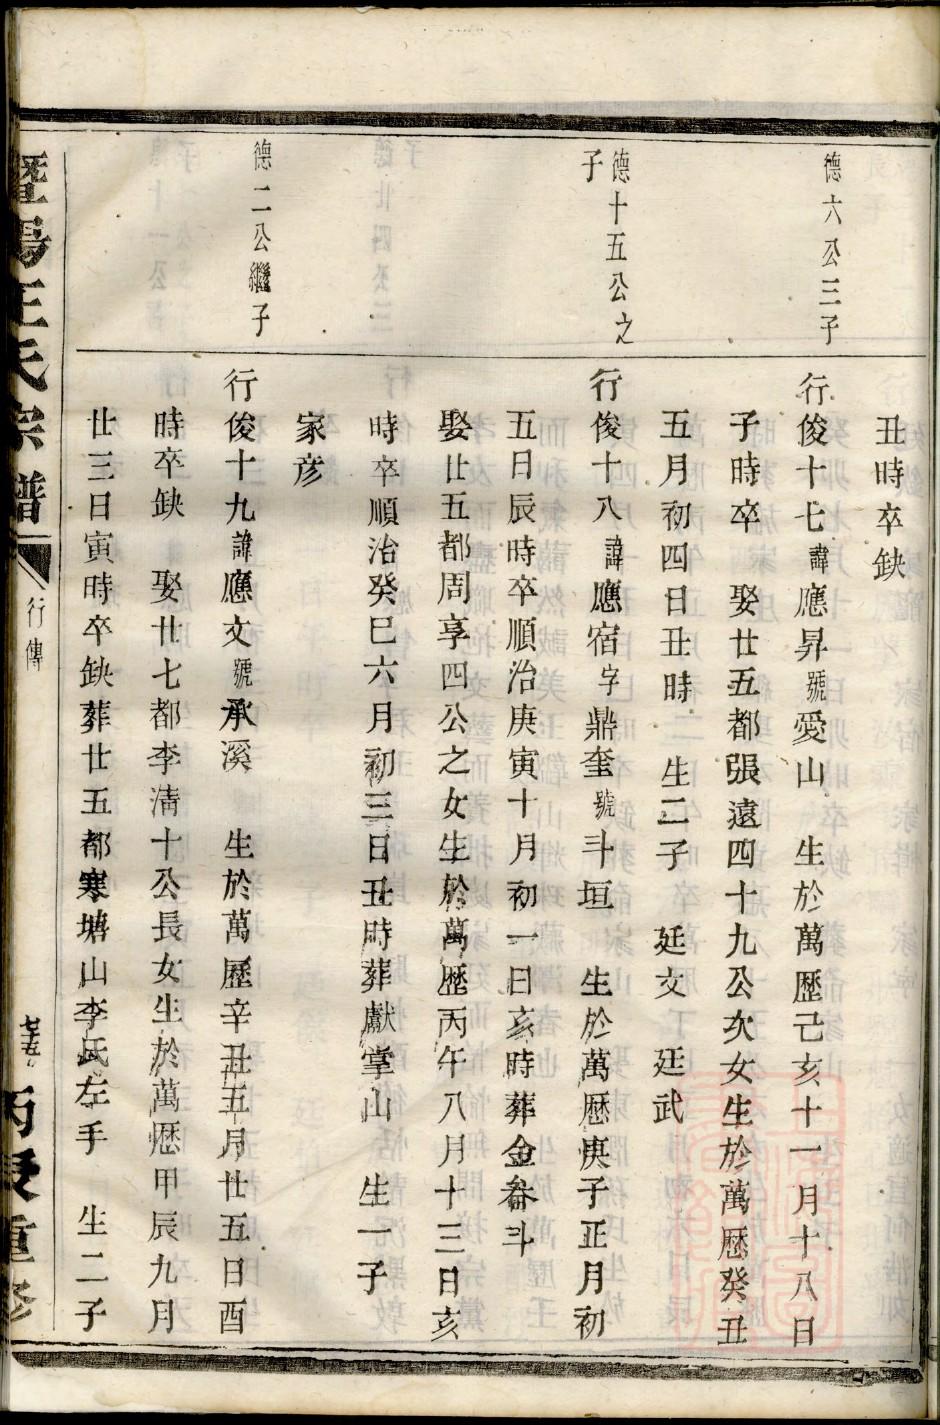 德六公三子
德十五公之
子
德二公繼子
丑時卒缺
行俊十七諱應昇號愛山 生於萬歷己亥十一月十八日
子時卒 娶廿五都張遠四十九公次女生於萬歷癸丑
五月初四日丑時 生二子 廷文 廷武
行俊十八諱應宿字鼎奎號斗垣 生於萬歷庚子正月初
五日辰時卒順治庚寅十月初一日亥時葬金畚斗
娶廿五都周享四公之女生於萬歷丙午八月十三日亥
時卒順治癸巳六月初三日丑時葬獻掌山 生一子
家彦
行俊十九諱應文號承溪 生於萬歷辛丑五月廿五日酉
時卒缺 娶廿七都李清十公長女生於萬歷甲辰九月
廿三日寅時卒缺葬廿五都寒塘山李氏左手 生二子
暨陽王氏宗譜
行傳
丙辰重修